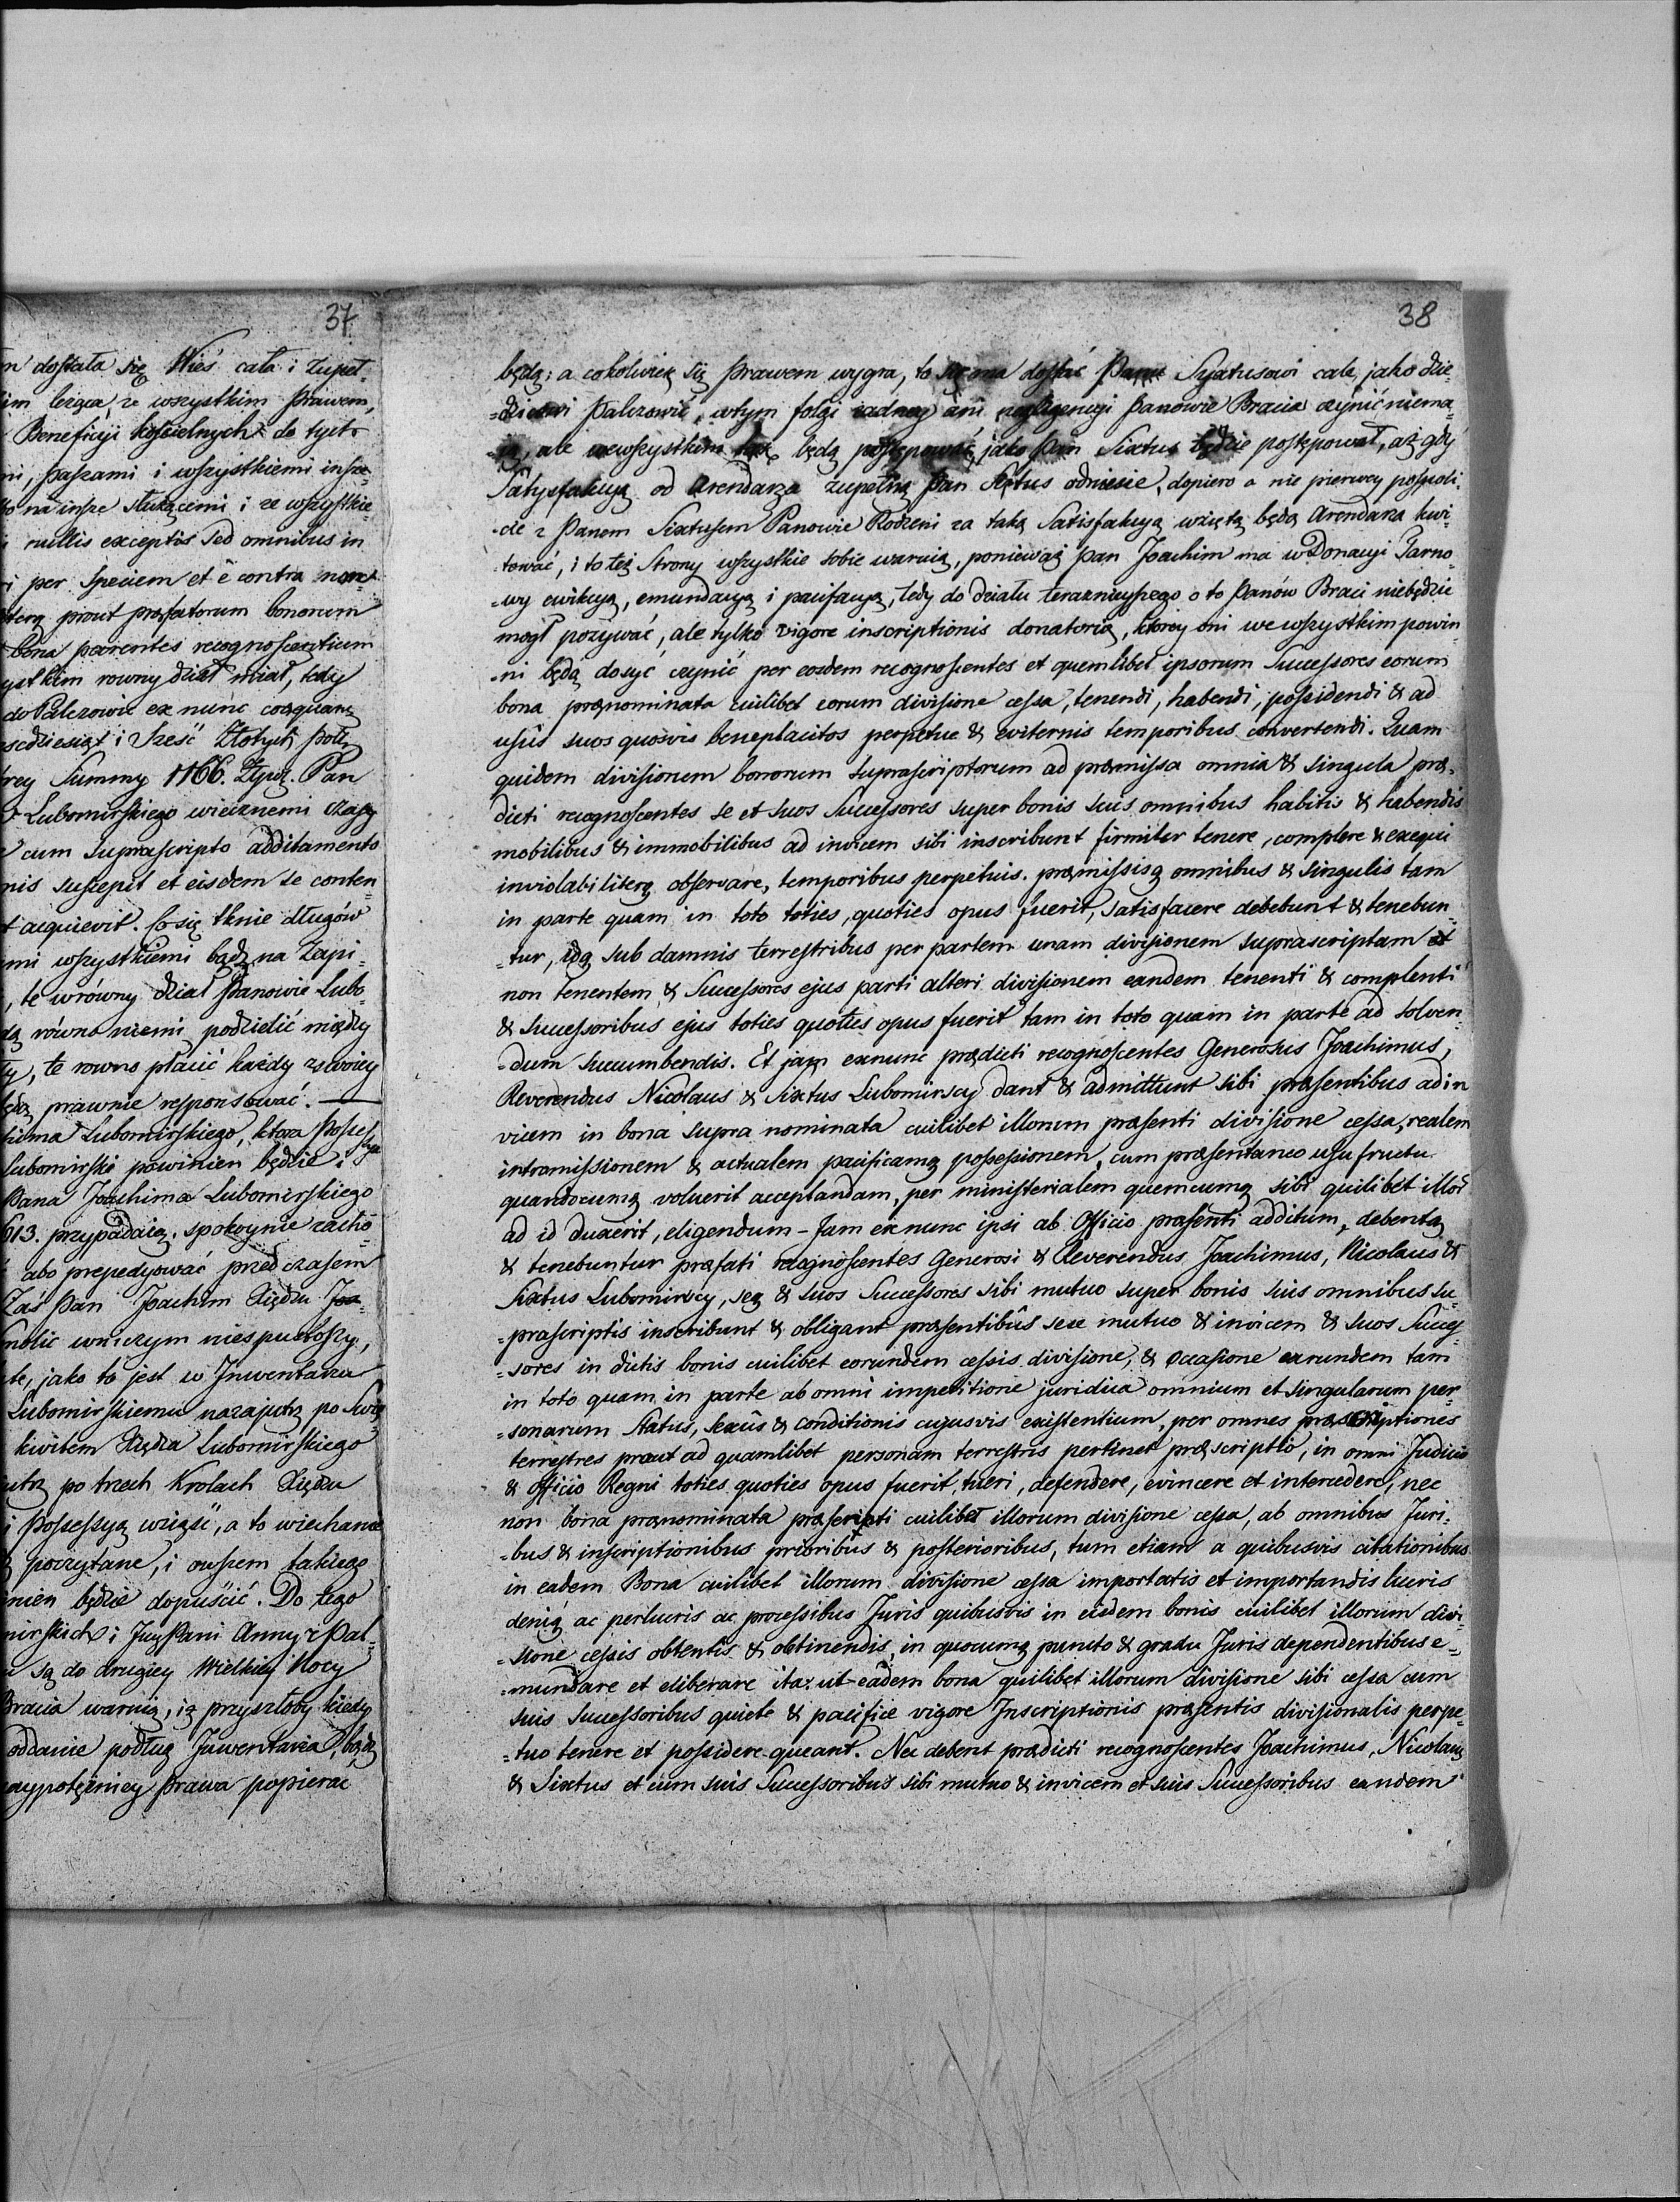 37
n dostała się Wieś cała i zupeł-
im leżąca, ze wszystkim prawem,
Beneficyi kościelnych do tych
ni, paszami i wszystkiemi insze-
to na insze służącemi i ze wszystkie-
i nullis exceptis sed omnibus in
i per speciem et è contra
terą prout præfatorum bonorum
bona parentes recognoscentium
ystkim rowny dział miał, tedy
do Palczowic ex nunc coæquanę
sedziesiąt i sześć Złotych poll
rey Summy 1166. Pan
Lubomirskiego wiecznemi czasy
cum suprascripto additamento
nis suscepit et eisdem se conten
t acquievit. Co się tknie długów
mi wszystkiemi bądź na Zapi-
, te wrówny dział Panowie Lubo-
dą równo niemi podzielić między
ty, te rowno płacić każdy z swoiey
będą prawnie responsować. —
hima Lubomirskiego, ktora Posses
sya
Lubomirski powinien będzie i
Pana Joachima Lubomirskiego
613. przypadaią. spokoynie zacho-
abo prepedyować przed czasem
Zaś Pan Joachim Xiędzu Joa-
wniczym niespustoszy,
te, jako to jest w Inwentarzu
Lubomirskiemu nazajutrz po Swię-
kwitem Xiędza Lubomirskiego
utrz po trzech Krolach Xiędzu
i Possessyą wziąść, a to wiechanie
poczytane, i ruszem takiego
nien będzie dopuścić. Do tego
mirskich i Jey Pani Anny z Pal-
u są do drugiey Wielkiey Nocy
Bracia waruią, iż przyszłoby kiedy
oddanie podług Inwentarza, będą
naypotężniey prawa popierac
38
będą; a cokolwiek się prawem wygra, to się ma dostać Panu Syxtusowi cale, jako dzie-
-dzicowi Palczowic, w tym folgi żadney ani negligencyi Panowie Bracia czynić niema-
-ią, ale we wszystkim tak będą postępować, jako Pan Sixtus będzie postępował, aż gdy
Satysfakcyą od Arendarza zupełną Pan Sixtus odniesie, dopiero a nie pierwey pospoli-
-cie z Panem Sixtusem Panowie Rodzeni za taką Satisfakcyą wziętą będą Arendarza kwi-
-tować, i to też Strony wszystkie sobie waruią, ponieważ Pan Joachim ma w Donacyi Tarno-
-wy ewikcyą, emundacyą i pacifacyą, tedy do działu teraznieyszego o to Panów Braci niebędzie
mogł pozywać, ale tylko vigore inscriptionis donatoriæ, ktorey oni we wszystkim powin-
-ni będą dosyć czynić, per eosdem recognoscentes et quemlibet ipsorum Successores eorum
bona prænominata cuilibet eorum divisione cessa, tenendi, habendi, possidendi & ad
usûs suos quosvis beneplacitos perpetue & æviternis temporibus convertendi. Quam
quidem divisionem bonorum suprascriptorum ad præmissa omnia & singula præ-
dicti recognoscentes se et suos Successores super bonis suis omnibus habitis & habendis
mobilibus & immobilibus ad invicem sibi inscribunt firmiter tenere, complere & exequi
inviolabiliterq observare, temporibus perpetuis. præmissisq omnibus & singulis tam
in parte quam in toto toties, quoties opus fuerit, satisfacere debebunt & tenebun-
-tur, idq sub damnis terrestribus per partem unam divisionem suprascriptam
non tenentem & Successores ejus parti alteri divisionem eandem tenenti & complenti
& Successoribus ejus toties quoties opus fuerit tam in toto quam in parte ad solven-
-dum succumbendis. Et jam exnunc prædicti recognoscentes Generosus Joachimus,
Reverendus Nicolaus & Sixtus Lubomirscy dant & admittunt sibi præsentibus adin
vicem in bona supra nominata cuilibet illorum præsenti divisione cessa, realem
intromissionem & actualem pacificamq possessionem, cum præsentaneo usufructu
quandocumq voluerit acceptandam, per ministerialem quemcumq sibi quilibet illor
ad id duxerit, eligendum – Jam exnunc ipsi ab Officio præsenti additum, debentq
& tenebuntur præfati recognoscentes Generosi & Reverendus Joachimus, Nicolaus &
Sixtus Lubomirscy, seq & suos Successores sibi mutuo super bonis suis omnibus su-
-prascriptis inscribunt & obligant præsentibûs sese mutuo & invicem & suos Succes-
-sores in dictis bonis cuilibet eorundem cessis divisione, & occasione earundem tam
in toto quam in parte ab omni impetitione juridica omnium et singularum per-
-sonarum status, sexûs & conditionis cujusvis existentium, per omnes præscriptiones
terrestres prout ad quamlibet personam terrestris pertinet præscriptio, in omni Judicio
& Officio Regni toties quoties opus fuerit, tueri, defendere, evincere et intercedere, nec
non bona prænominata præscripti cuilibet illorum divisione cessa, ab omnibus Juri-
-bus & inscriptionibus prioribus & posterioribus, tum etiam a quibusvis citationibus
in eadem Bona cuilibet illorum divisione cessa importatis et importandis lucris
deniq ac perlucris ac processibus Juris quibusvis in eisdem bonis cuilibet illorum divi-
-sione cessis obtentis & obtinendis, in quocumq puncto & gradu Juris dependentibus e-
-mundare et eliberare ita: ut eadem bona quilibet illorum divisione sibi cessa cum
suis Successoribus quiete & pacifice vigore Inscriptionis præsentis divisionalis perpe-
-tuo tenere et possidere queant. Nec debent prædicti recognoscentes Joachimus, Nicolaus
& Sixtus et cum suis Successoribus sibi mutuo & invicem et suis Successoribus eandem